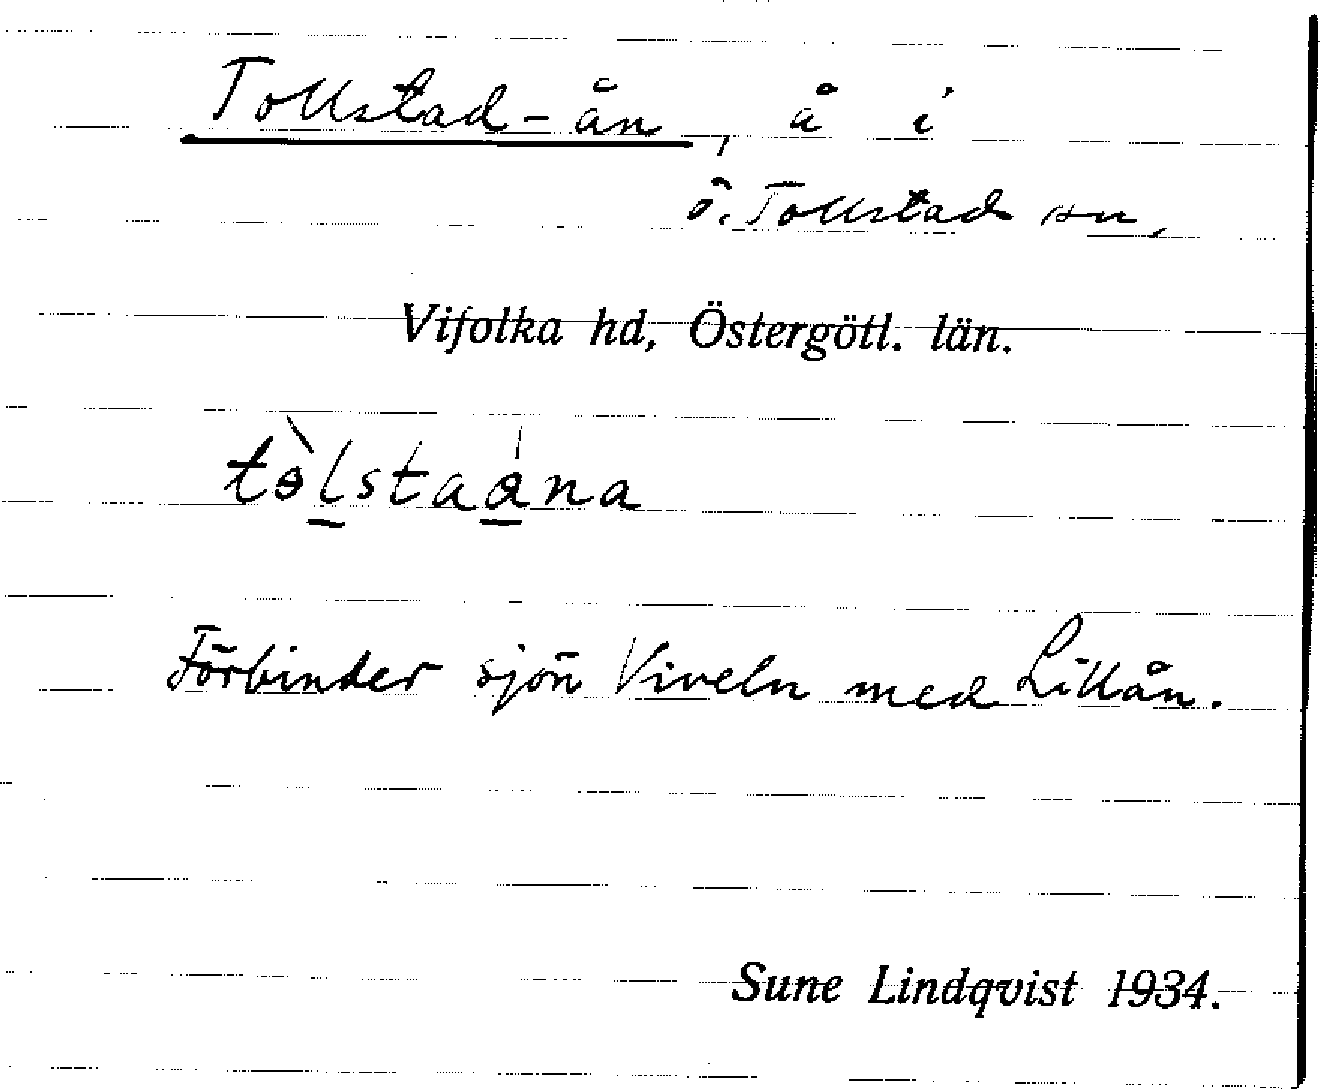 Tollstad-ån, å i
ö. Tollstad sn,
Vifolka hd, Östergötl. län.
tòlstaána
Förbinder sjön Viveln med Lillån.
Sune Lindqvist 1934.